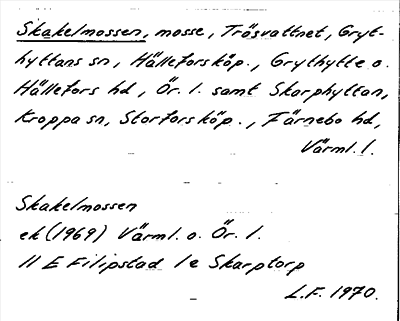 Skakelmossen, mosse, Träsvattnet, Gryt-
hyttans sn, Hälleforsköp., Grythytte o.
Hällefors hd, Ör. l. samt Skarphyttan,
Kroppa sn, Storforsköp., Färnebo hd,
Värml. l.
Skakelmossen
ek (1969) Värml. o. Ör. l.
11 E Filipstad 1e Skarptorp
L.F. 1970.